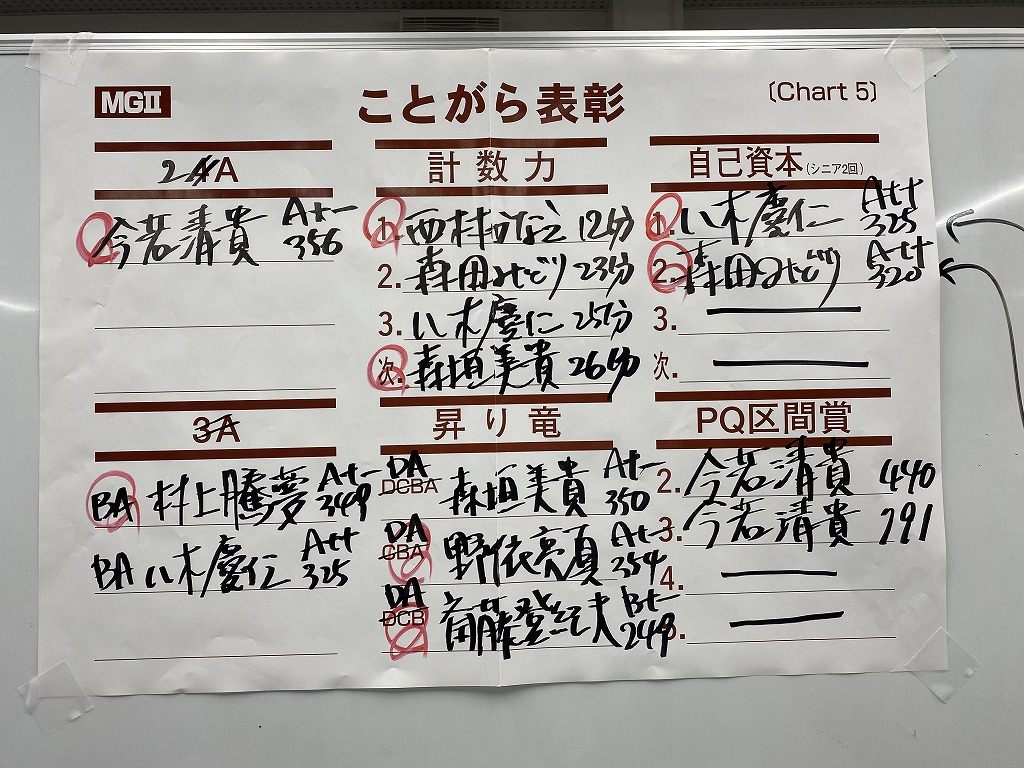 MGⅡ
ことがら表彰
〔Chart 5〕
2A
今若清貴 A+- 356
計数力
1. 西村かなこ 12分
2. 森田みどり 23分
3. 八木慶仁 25分
次. 森垣美貴 26分
自己資本(シニア2回)
1. 八木慶仁 A++ 325
2. 森田みどり A++ 320
3.
次.
3A
BA 村上騰夢 A+- 349
BA 八木慶仁 A++ 325
昇り竜
DA DCBA 森垣美貴 A+- 350
DA CBA 野依亮 A+- 354
DA DCB 斎藤登紀夫 B+- 249
PQ区間賞
2. 今若清貴 440
3. 今若清貴 791
4.
5.